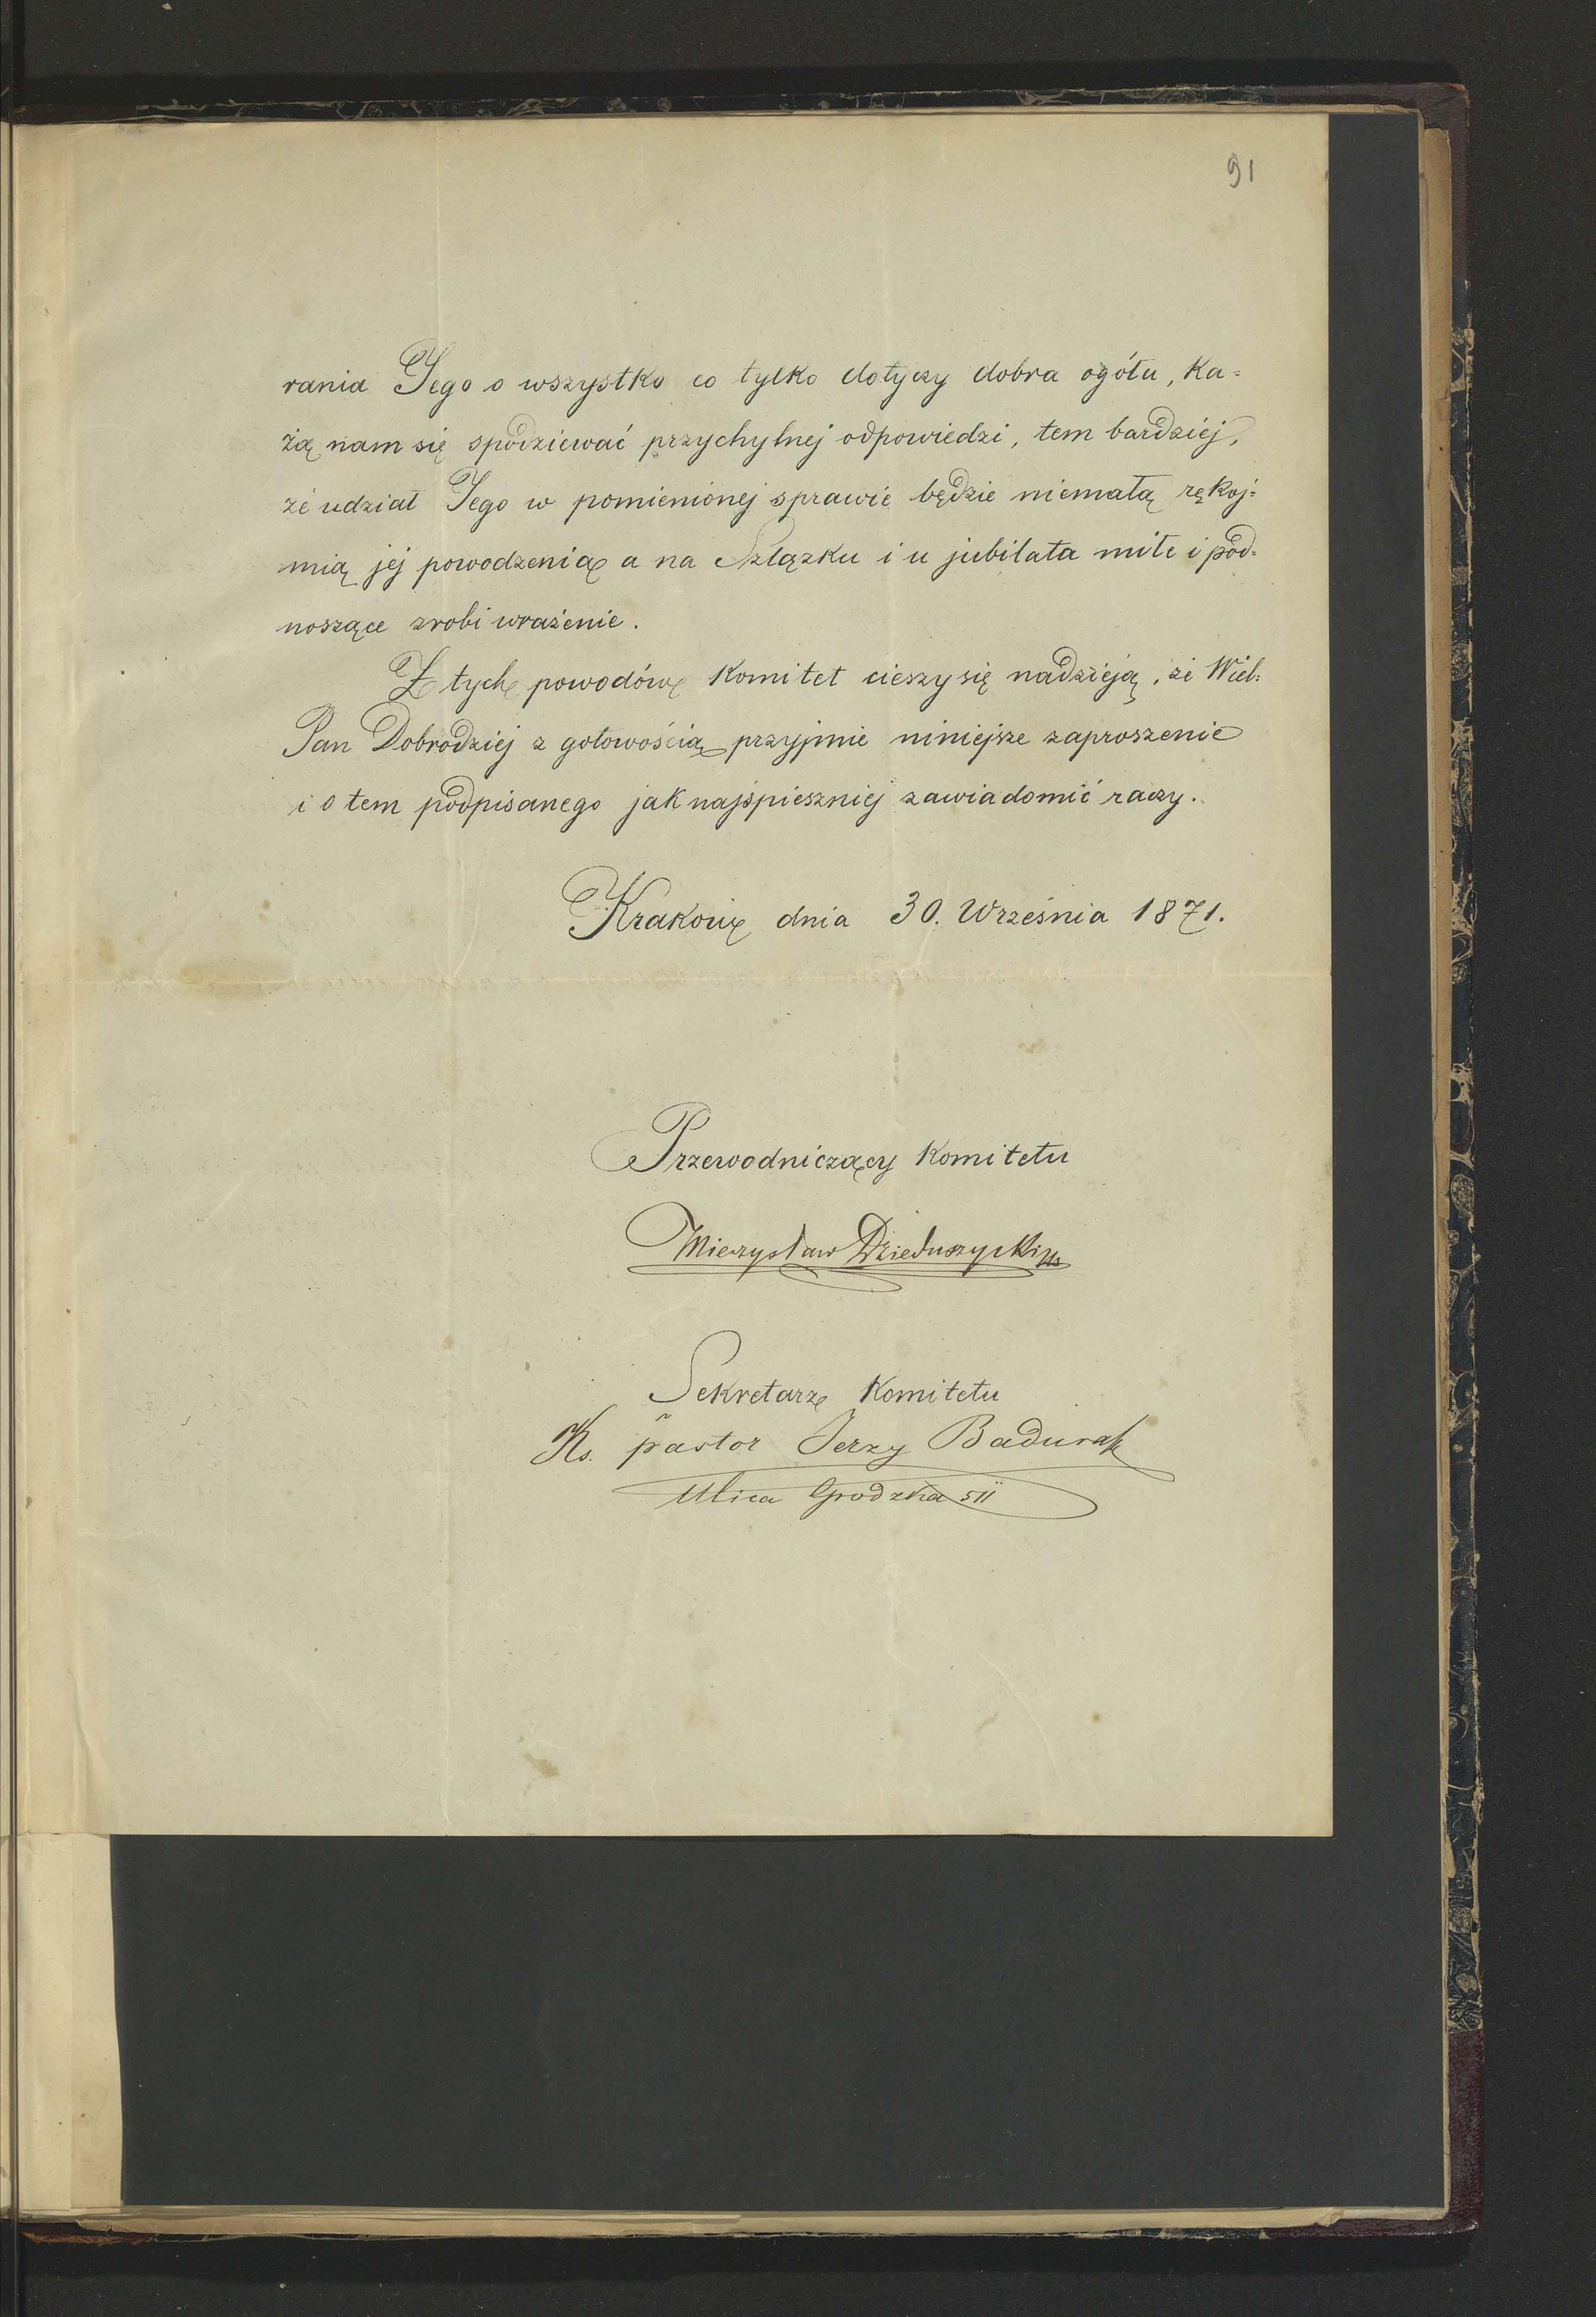 91
rania Jego o wszystko co tylko dotyczy dobra ogółu, ka=
żą nam się spodziewać przychylnej odpowiedzi, tem bardziej,
że udział Jego w pomienionej sprawie będzie niemałą rękoj=
mią jej powodzenia a na Szlązku i u jubilata miłe i pod=
noszące zrobi wrażenie.
Z tych powodów Komitet cieszy się nadzieją, że Wiel:
Pan Dobrodziej z gotowością przyjmie niniejsze zaproszenie
i o tem podpisanego jak najspieszniej zawiadomić raczy.
Kraków dnia 30. Września 1871.
Przewodniczący Komitetu
Mieczysław Dzieduszycki
Sekretarz Komitetu
Ks. pastor Jerzy Badura
Ulica Grodzka 511